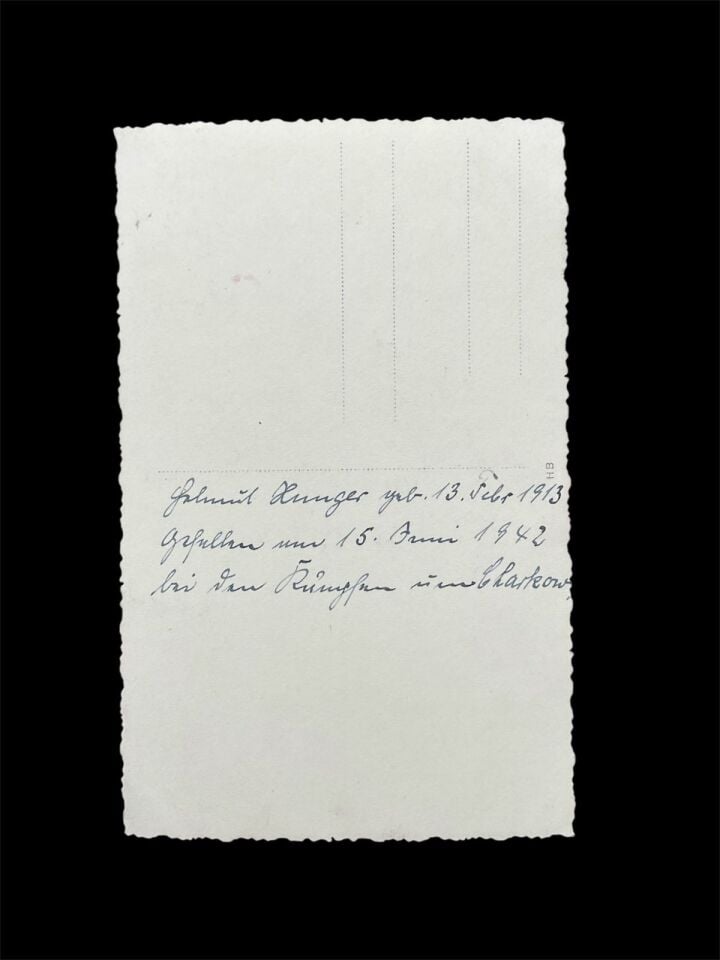 HB
Helmut Hunger geb. 13. Febr 1913
Gefallen am 15. Juni 1942
bei den Kämpfen um Charkow.